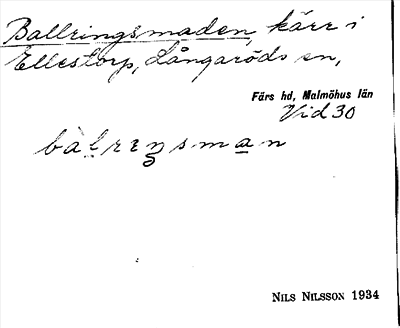 Ballringsmaden, kärr i
Ellestorp, Långaröds sn,
Färs hd, Malmöhus län
Vid 30
bàlrɪŋsman
NILS NILSSON 1934